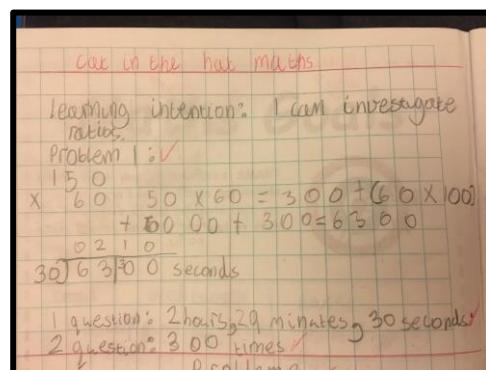 cat in the hat maths
Learning intention: I can investigate
ratios.
Problem 1:✓
150
x 60 50 x 60 = 300 + (60 x 100)
+ 6000 + 300 = 6300
0210
30)6300 seconds
1 question: 2 hours, 29 minutes, 30 seconds✓
2 question: 300 times ✓